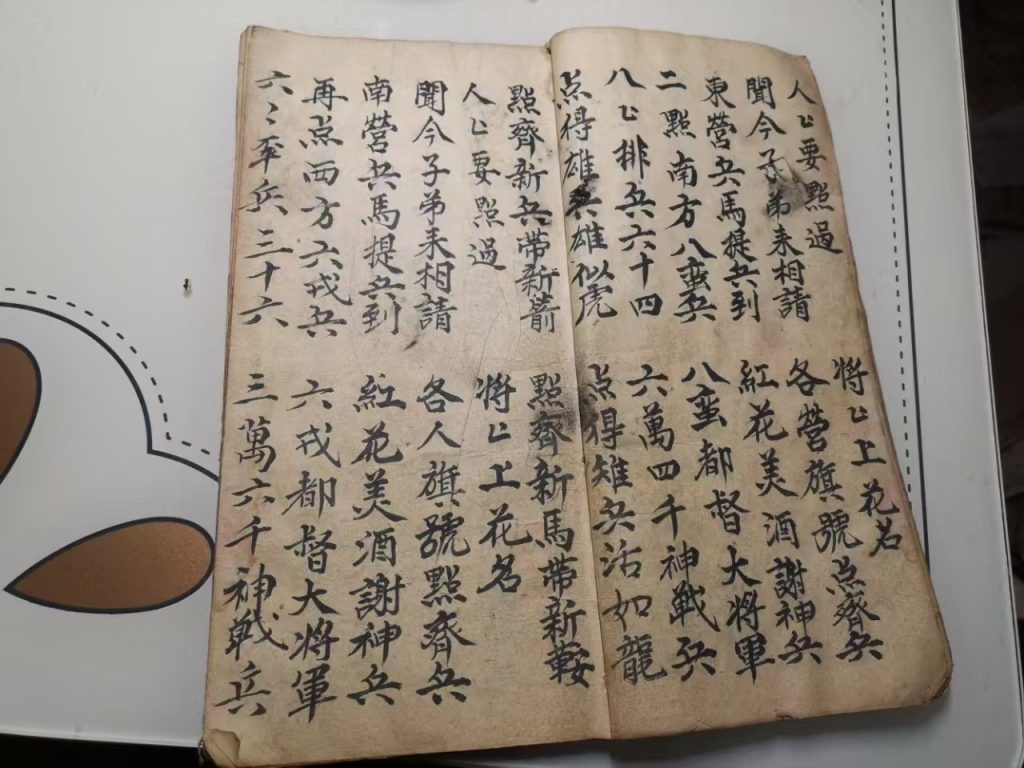 人〻要點過
將〻上花名
聞今子弟来相請
各營旗號点齊兵
東營兵馬提兵到
紅花美酒謝神兵
二點南方八蛮兵
八蛮都督大将軍
八〻排兵六十四
六萬四千神戦兵
点得雄兵雄似虎
点得雄兵活如龍
點齊新兵帶新箭
點齊新馬帶新鞍
人〻要點過
將〻上花名
聞今子弟来相請
各人旗號點齊兵
南營兵馬提兵到
紅花美酒謝神兵
再点西方六戎兵
六戎都督大将軍
六〻平兵三十六
三萬六千神戦兵